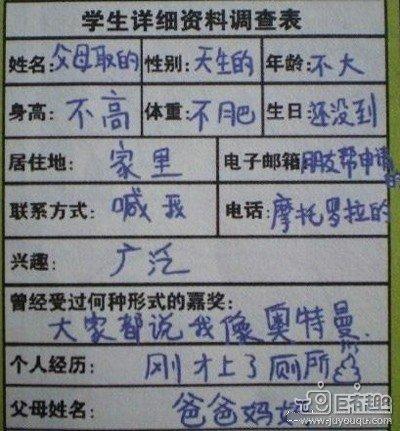 学生详细资料调查表
姓名:父母取的 性别:天生的 年龄:不大
身高:不高 体重:不肥 生日 还没到
居住地:家里 电子邮箱 朋友帮申请的
联系方式:喊我 电话:摩托罗拉的
兴趣:广泛
曾经受过何种形式的嘉奖:
大家都说我像奥特曼.
个人经历:刚才上了厕所
父母姓名:爸爸妈妈
巨奇趣
www.juyouqu.com